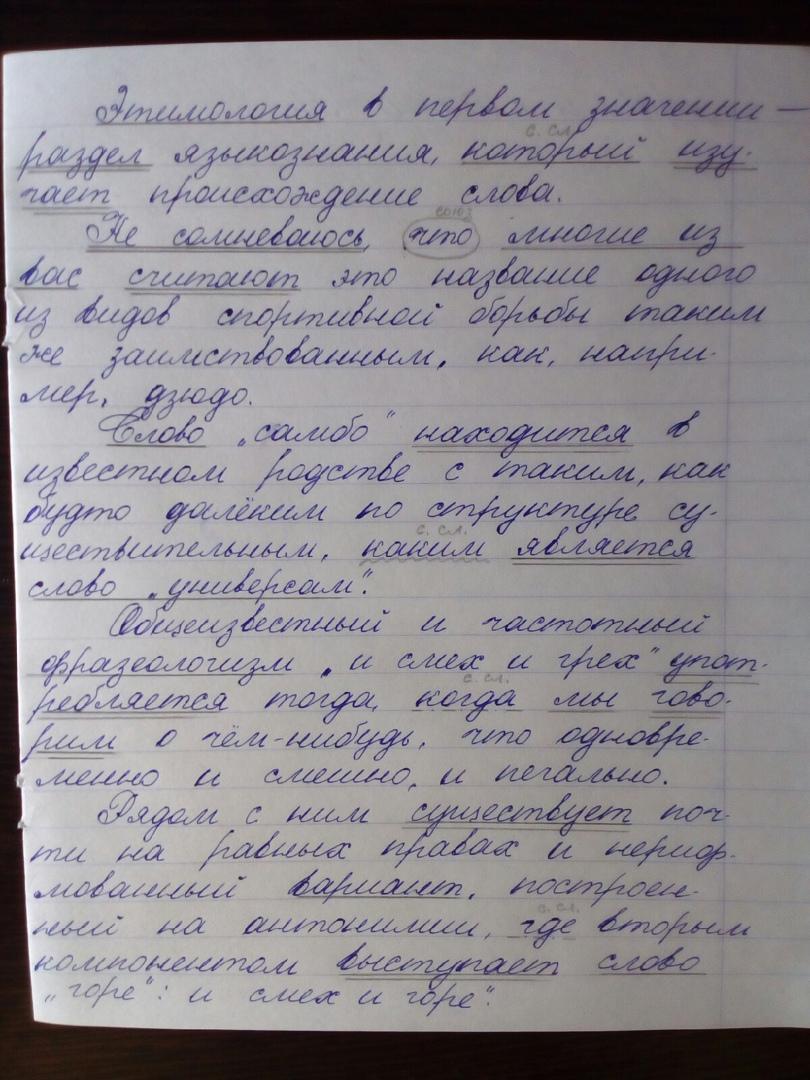 Этимология в первом значении —
с. сл.
раздел языкознания, который изу-
чает происхождение слова.
союз
Не сомневаюсь, что многие из
вас считают это название одного
из видов спортивной борьбы таким
же заимствованным, как, напри-
мер, дзюдо.
Слово „самбо" находится в
известном родстве с таким, как
будто далёким по структуре су-
с. сл.
ществительным, каким является
слово „универсам".
Общеизвестный и частотный
фразеологизм „и смех и грех" упот-
с. сл.
ребляется тогда, когда мы гово-
рим о чём-нибудь, что одновре-
менно и смешно, и печально.
Рядом с ним существует поч-
ти на равных правах и нериф-
мованный вариант, построен-
с. сл.
ный на антонимии, где вторым
компонентом выступает слово
„горе": и смех и горе".